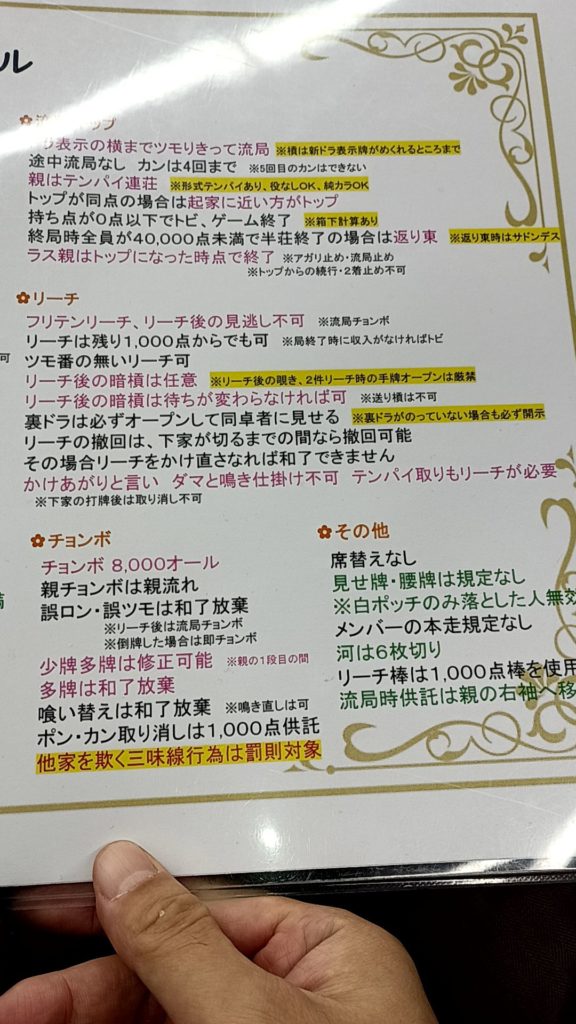 ル
トップ
表示の横までツモりきって流局 ※槓は新ドラ表示牌がめくれるところまで
途中流局なし カンは4回まで ※5回目のカンはできない
親はテンパイ連荘 ※形式テンパイあり、役なしOK、純カラOK
トップが同点の場合は起家に近い方がトップ
持ち点が0点以下でトビ、ゲーム終了 ※箱下計算あり
終局時全員が40,000点未満で半荘終了の場合は返り東 ※返り東時はサドンデス
ラス親はトップになった時点で終了 ※アガリ止め・流局止め
※トップからの続行・2着止め不可
✿リーチ
フリテンリーチ、リーチ後の見逃し不可 ※流局チョンボ
リーチは残り1,000点からでも可 ※局終了時に収入がなければトビ
可
ツモ番の無いリーチ可
リーチ後の暗槓は任意 ※リーチ後の覗き、2件リーチ時の手牌オープンは厳禁
リーチ後の暗槓は待ちが変わらなければ可 ※送り槓は不可
裏ドラは必ずオープンして同卓者に見せる ※裏ドラがのっていない場合も必ず開示
リーチの撤回は、下家が切るまでの間なら撤回可能
その場合リーチをかけ直さなれば和了できません
かけあがりと言い ダマと鳴き仕掛け不可 テンパイ取りもリーチが必要
※下家の打牌後は取り消し不可
✿チョンボ
チョンボ 8,000オール
親チョンボは親流れ
誤ロン・誤ツモは和了放棄
※リーチ後は流局チョンボ
※倒牌した場合は即チョンボ
少牌多牌は修正可能 ※親の1段目の間
多牌は和了放棄
喰い替えは和了放棄 ※鳴き直しは可
ポン・カン取り消しは1,000点供託
他家を欺く三味線行為は罰則対象
✿その他
席替えなし
見せ牌・腰牌は規定なし
※白ポッチのみ落とした人無効
メンバーの本走規定なし
河は6枚切り
リーチ棒は1,000点棒を使用
流局時供託は親の右袖へ移